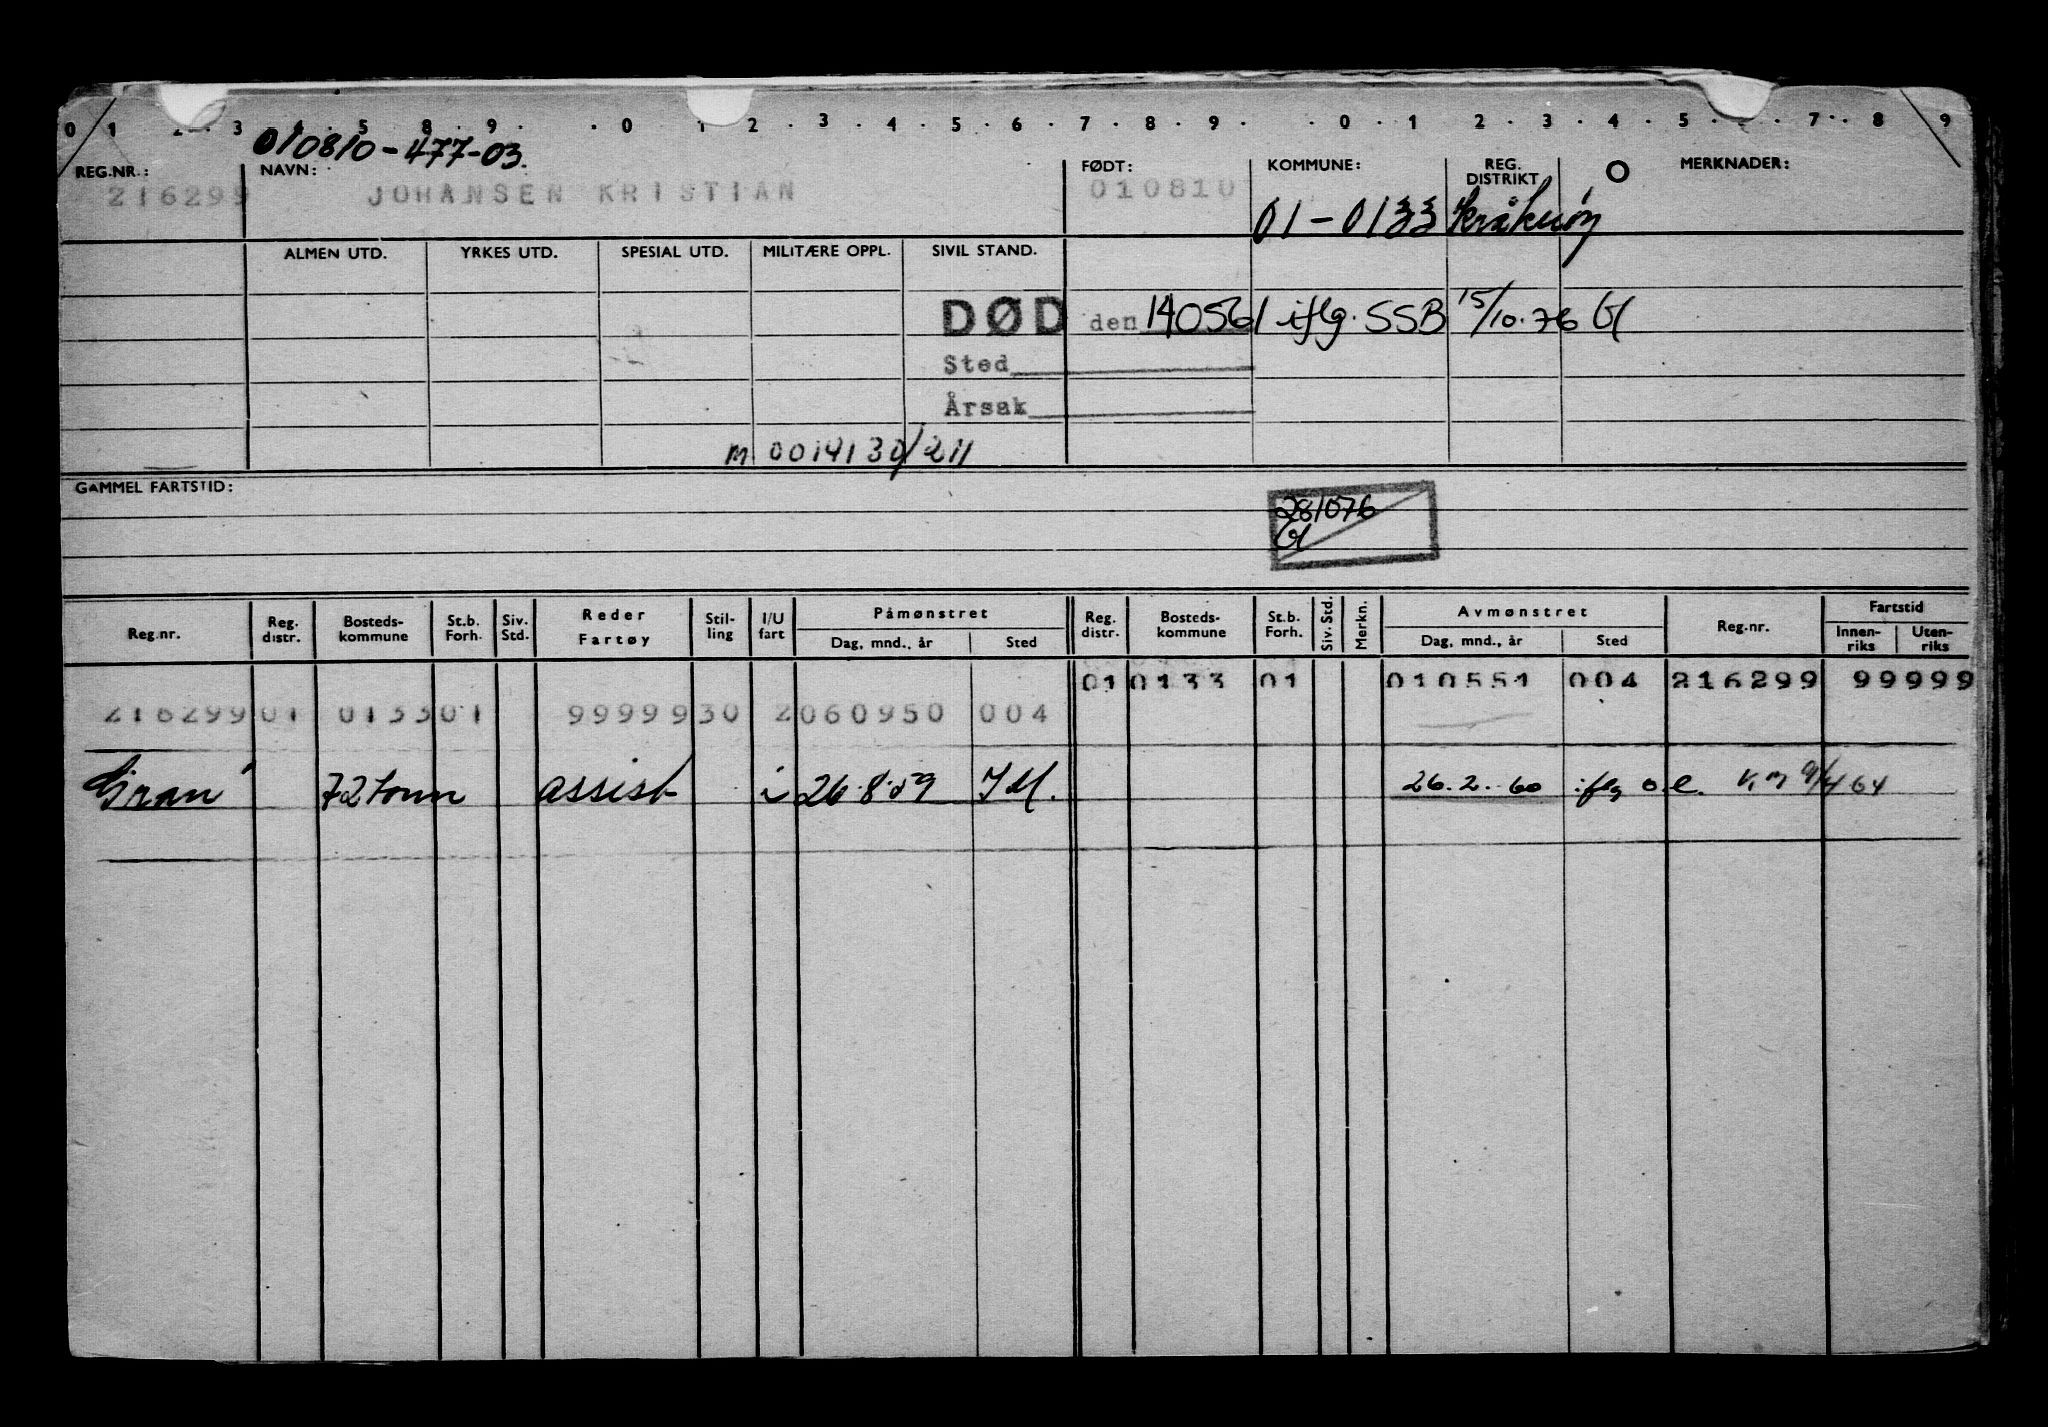 0 1 2 3 4 5 8 9 0 1 2 3 4 5 6 7 8 9 0 1 2 3 4 5 7 8 9
010810-477-03.
REG.NR.: NAVN: FØDT: KOMMUNE: REG. DISTRIKT MERKNADER:
216299 JOHANSEN KRISTIAN 010810
01-0133 Kråkerøy
ALMEN UTD. YRKES UTD. SPESIAL UTD. MILITÆRE OPPL. SIVIL STAND.
DØD den 140561 iflg. SSB 15/10.76
Sted
Årsak
m 0014130/211
GAMMEL FARTSTID:
281076
Reg.nr. Reg. distr. Bosteds-kommune St.b. Forh. Siv. Std. Reder Fartøy Stil-ling I/U fart Påmønstret Dag, mnd., år Sted Reg. distr. Bosteds-kommune St.b. Forh. Siv. Std. Merkn. Avmønstret Dag, mnd., år Sted Reg.nr. Fartstid Innen-riks Uten-riks
01 0133 01 010551 004 216299 99999
216299 01 0133 01 99999 30 2 060950 004
"Gran" 72 tonn assist i 26.8.59 26.2.60 iflg o.l. 9/4 64